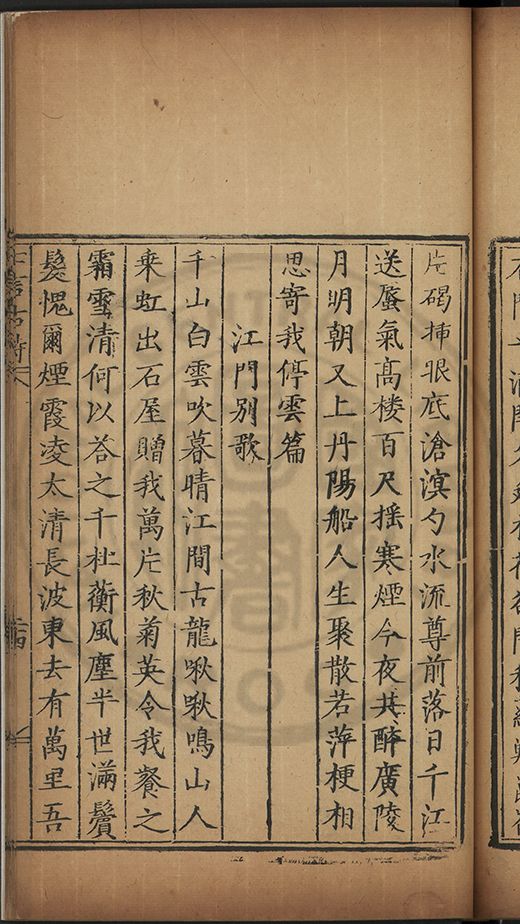 片碣插眼底滄溟勺水流尊前落日千江
送蜃氣髙楼百尺揺寒煙今夜共醉廣陵
月明朝又上丹陽船人生聚散若萍梗相
思寄我停雲篇
江門别歌
千山白雲吹暮晴江間古龍啾啾鳴山人
乘虹出石屋贈我萬片秋菊英令我餐之
霜雪清何以荅之千杜蘅風塵半世滿鬢
髮愧爾煙霞凌太清長波東去有萬里吾
七言古詩